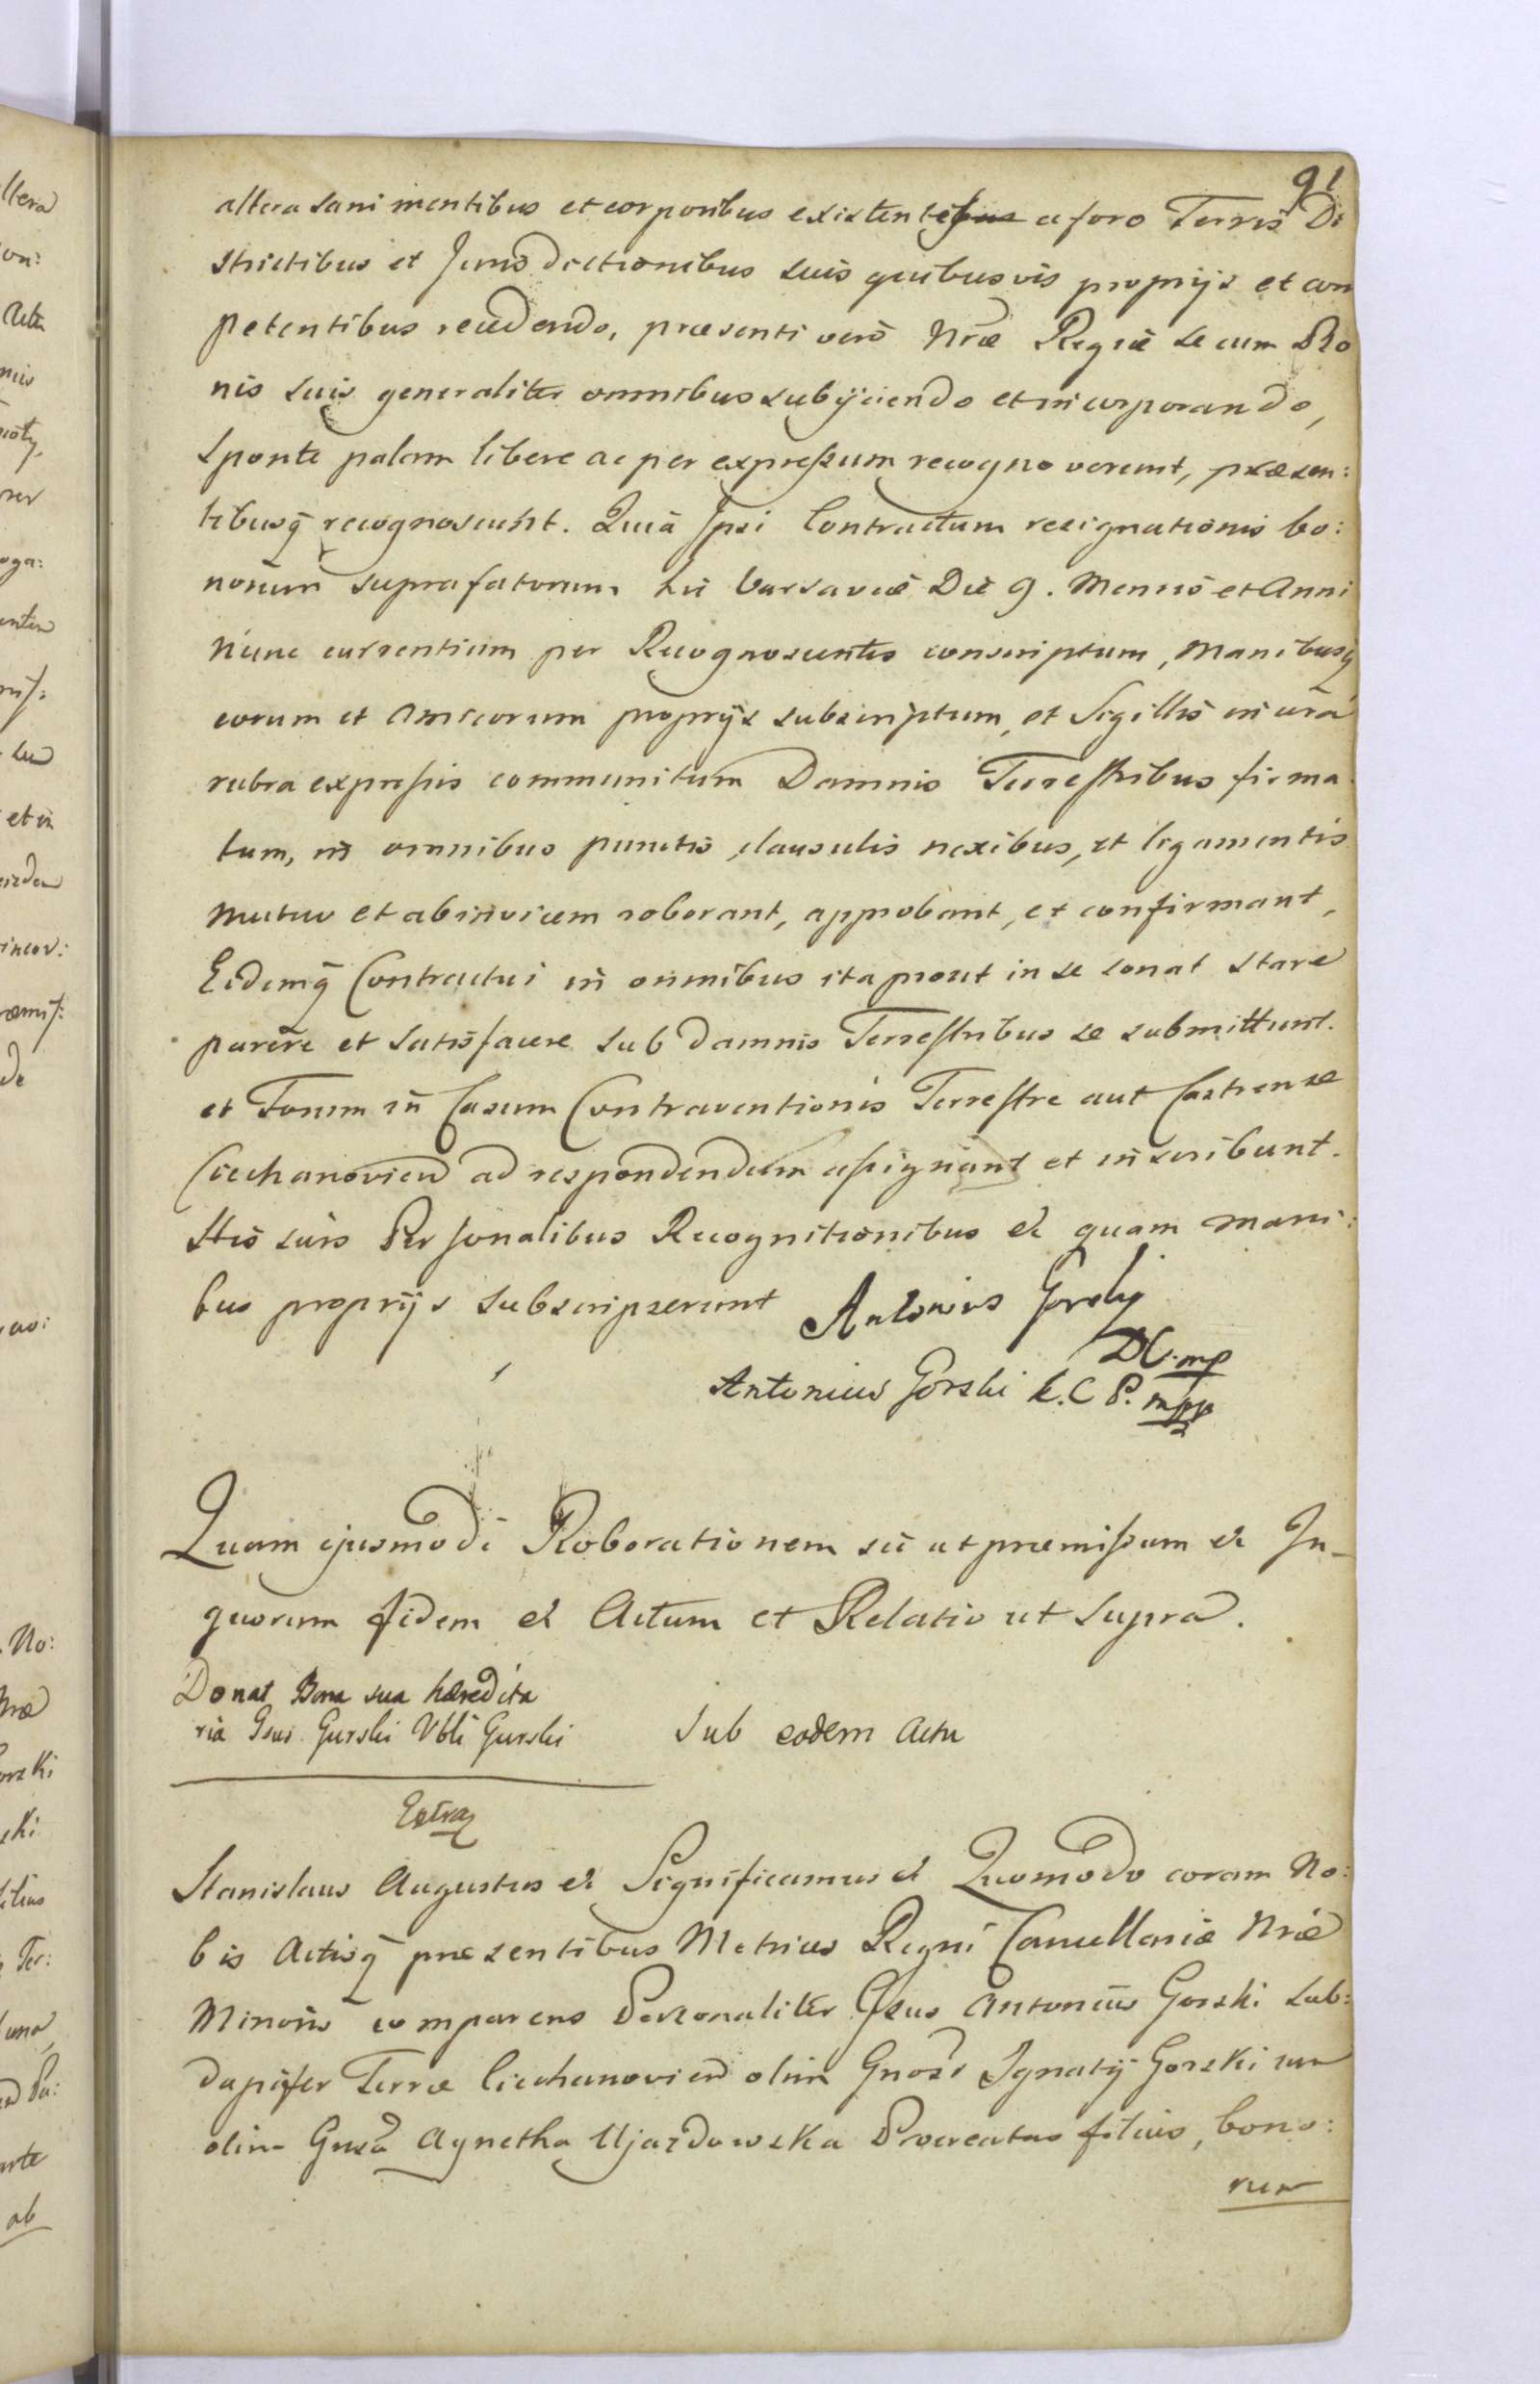 91
altera sani mentibus et corporibus existentibus a foro Terris Di
strictibus et Jurisdictionibus suis quibusvis proprijs et com
petentibus recedendo, præsenti verō Nræ Regiæ se cum Bo
nis suis generaliter omnibus subijciendo et incorporando,
Sponte palam libere ac per expressum recognoverunt, præsen:
tibusq̄ recognoscunt. Quiā Ipsi Contractum resignationis bo:
norum suprafatorum hic Varsaviæ Die 9. Mensis et Anni
nunc currentium per Recognoscentes conscriptum, Manibusq̄
eorum et Amicorum proprijs subscriptum, et Sigillis in cera
rubra expressis communitum Damnis Terrestribus firma
tum, in omnibus punctis, clausulis nexibus, et ligamentis
mutuo et abinvicem roborant, approbant, et confirmant,
Eidemq̄ Contractui in omnibus ita prout in se sonat stare
parēre et satisfacere sub Damnis Terrestribus se submittunt.
et Forum in Casum Contraventionis Terrestre aut Castrense
Ciechanovien ad respondendum assignant et inscribunt.
Htis suis Personalibus Recognitionibus et quam mani:
bus proprijs subscripserunt Antonius Gorski
DC. mp
Antonius Gorski k. C P. mpp
Quam ejusmodi Roborationem sic ut præmissum et In-
quorum fidem et Actum et Relatio ut supra.
Donat Bona sua hæredita
ria Gsus Gurski Vbli Gurski Sub eodem Actu
Extraq
Stanislaus Augustus et Significamus et Quomodo coram No:
bis Actisq̄ præsentibus Metrices Regni Cancellariæ Nræ
Minoris comparens Personaliter Gsus Antonius Gorski Sub:
dapifer Terræ Ciechanovien olim Gnosi Ignatij Gorski cum
olim Gnsa Agnetha Ujazdowska Procreatus filius, bono:
rum